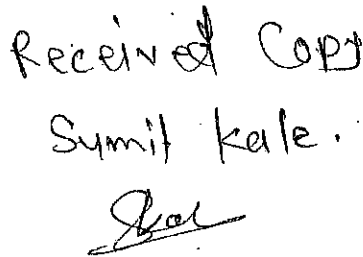 Received Copy
Sumit Kale.